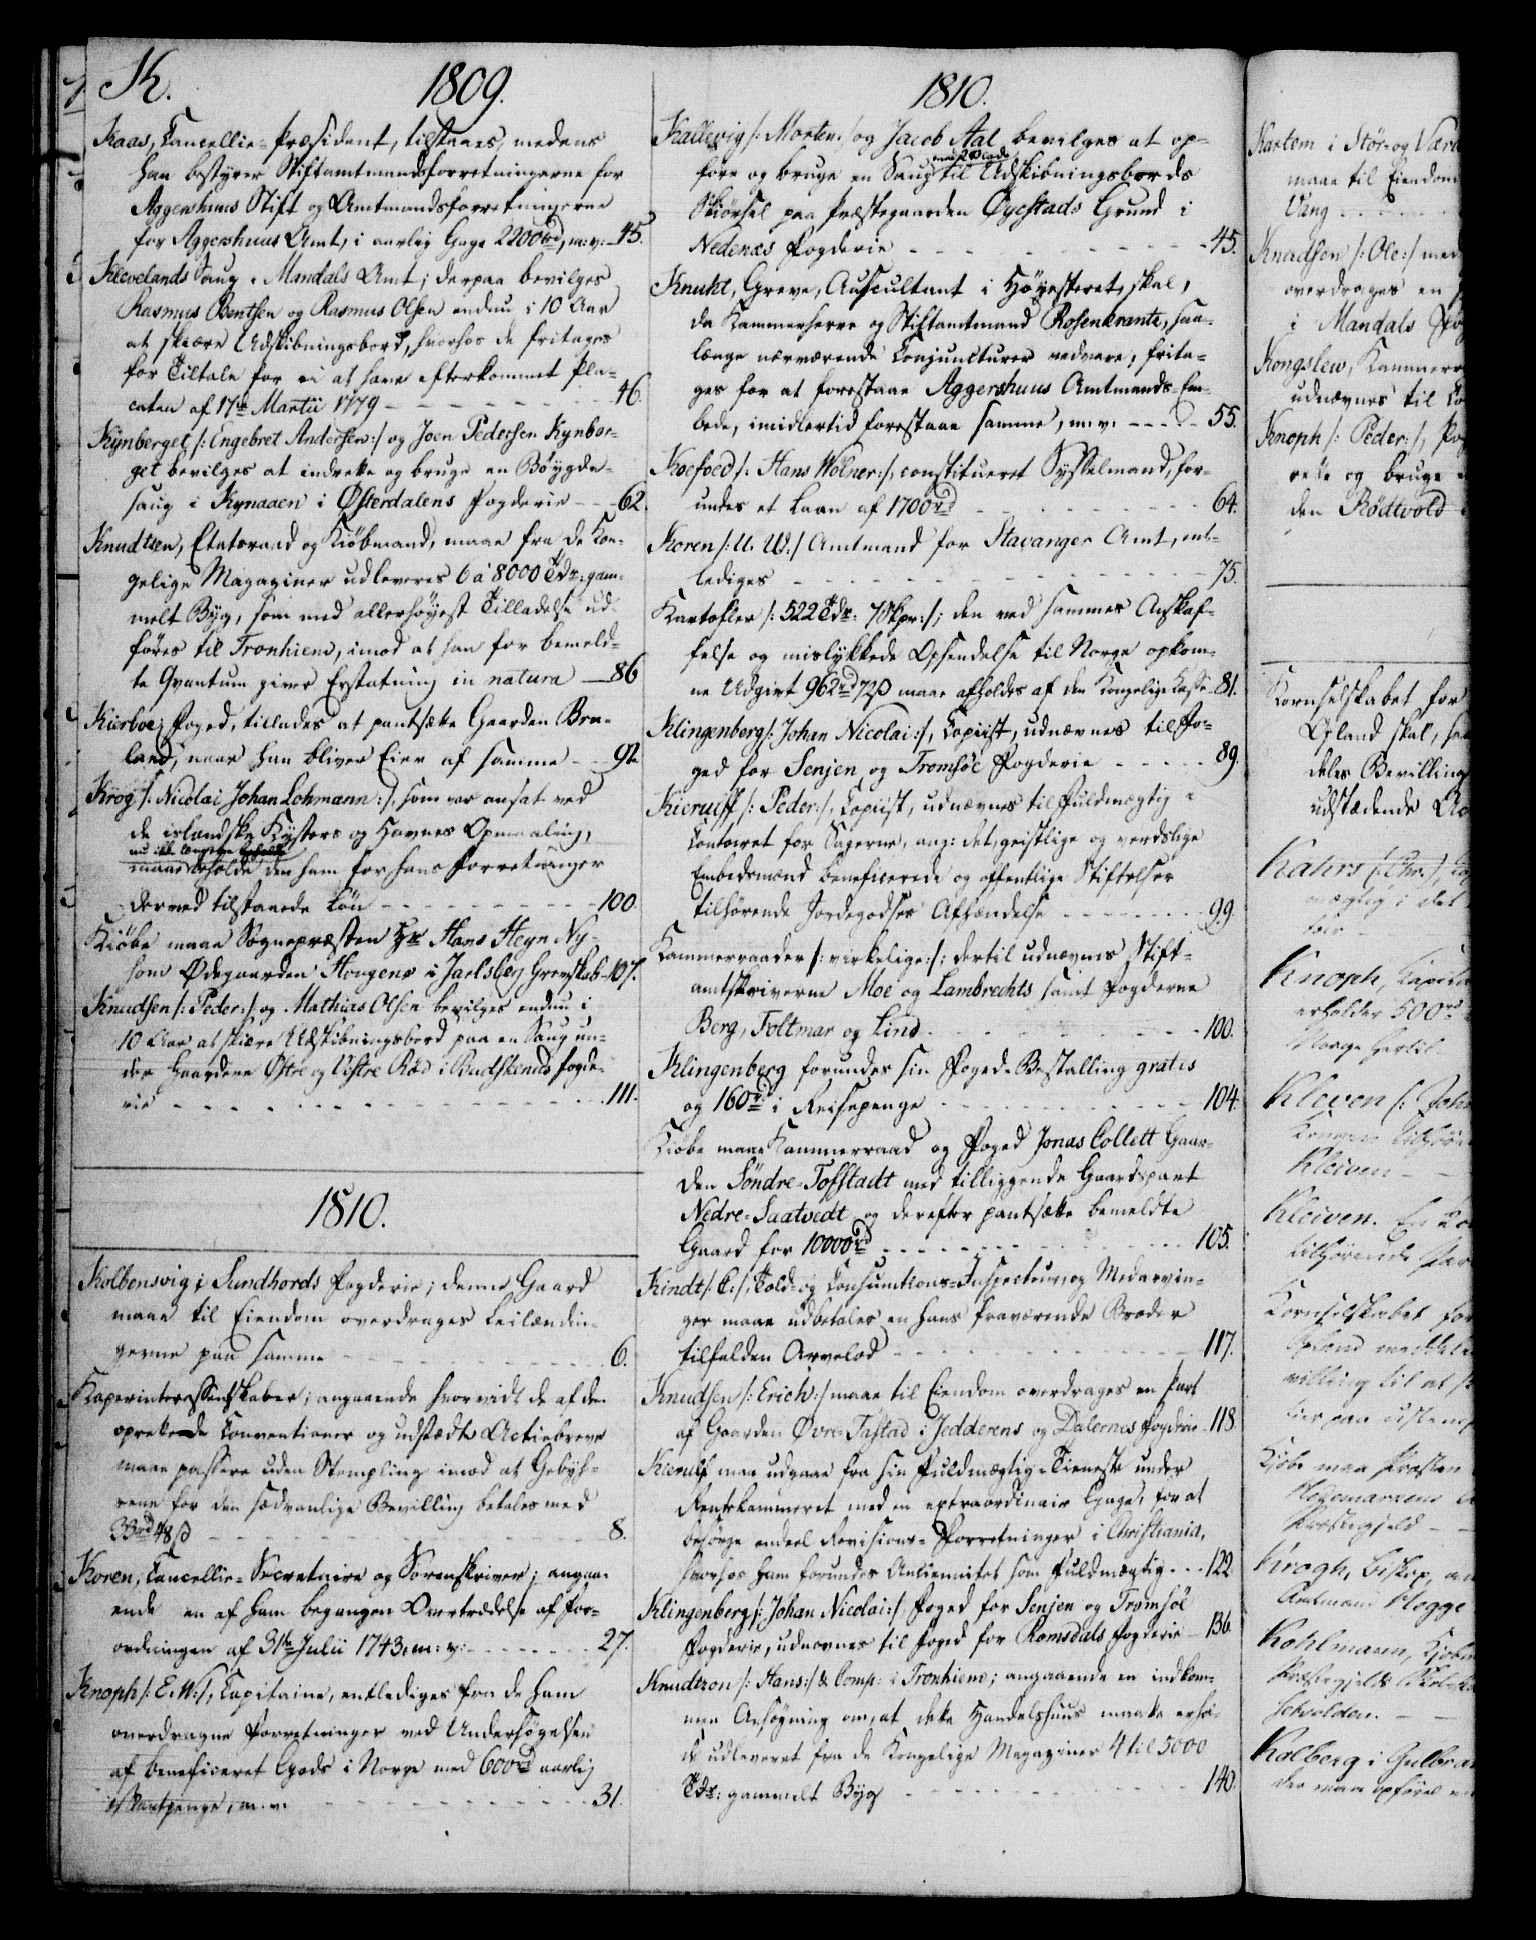 K. 1809.
Kaas, Cancellie-Præsident, tilstaaes, medens
han bestyrer Stiftamtmandsforretningerne for
Aggershuus Stift og Amtmandsforretningerne
for Aggershuus Amt, i aarlig Gage 2200rd, m:v: 45.
Klevelands Saug i Mandals Amt; derpaa bevilges
Rasmus Bentsen og Rasmus Olsen endnu i 10 Aar
at skiære Udskibningsbord, hvorhos de fritages
for Tiltale for ei at have efterkommet Pla-
caten af 17de Martii 1779 - - - 46.
Kynberget /: Engebret Andersen:/ og Joen Pedersen Kynber-
get bevilges at indrette og bruge en Bøygde-
saug i Kynaaen i Østerdalens Fogderie - - 62.
Knudtsen, Etatsraad og Kiøbmand, maae fra de Kon-
gelige Magaziner udleveres 6 à 8000 Tdr: gam-
melt Byg, som med allerhøyest Tilladelse ud-
føres til Tronhiem, imod at han for bemeld-
te Qvantum giver Erstatning in natura - 86
Kierboe, Foged, tillades at pantsætte Gaarden Bra-
land, naar han bliver Eier af samme - - 92.
Krog /: Nicolai Johan Lohmann :/, som var ansat ved
de islandske Kysters og Havnes Opmaaling,
maae beholde den ham for hans Forretninger
derved tilstaaede Løn - - - 100.
Kiøbe maae Sognepræsten Hr Hans Heyn Ny-
som Ødegaarden Hougene i Jarlsberg Grevskab - 107.
Knudsen /: Peder:/ og Mathias Olsen bevilges endnu i
10 Aar at skiære Udskibningsbord paa en Saug un-
der Gaardene Østre og Vestre Ræd i Budskeruds Fogde-
rie - - - 111.
1810.
Kolbensvig i Sundhords Fogderie; denne Gaard
maae til Eiendom overdrages Leilændin-
gerne paa samme - - - 6.
Kaperinteressentskaber; angaaende hvorvidt de af dem
oprettede Conventioner og udstædte Actiebreve
maae passere uden Stempling imod at Gebyh-
rene for den sædvanlige Bevilling betales med
33rd 48ß - - - 8.
Koren, Cancellie-Secretaire og Sorenskriver; angaa-
ende en af ham begangen Overtrædelse af For-
ordningen af 31te Julii 1743. m: v: - - - 27.
Knoph /: E. W:/, Capitaine, entlediges fra de ham
overdragne Forretninger ved Undersøgelsen
af beneficeret Gods i Norge med 600rd aarlig
i Vartpenge, m. v. - - - 31.
1810.
Kallevig /: Morten:/ og Jacob Aal bevilges at op-
med 2 Blade
føre og bruge en Saug til Udskibningsbords
Skiørsel paa Præstegaarden Øyestads Grund i
Nedenæs Fogderie - - - 45.
Knuht, Greve, Auscultant i Høyesteret, skal,
da Kammerherre og Stiftamtmand Rosenkrantz, saa-
længe nærværende Conjuncturer vedvare, frita-
ges for at forestaae Aggershuus Amtmands-Em-
bede, imidlertid forestaae samme, m. v. - - - 55.
Koefoed /: Hans Wölner:/, constitueret Sysselmand, for-
undes et Laan af 1700rd - - - 64.
Koren /: U. W./ Amtmand for Stavanger Amt, ent-
lediges - - - 75.
Kartofler /: 522 Tdr. 7 Skpr:/; den ved sammes Anskaf-
felse og mislykkede Opsendelse til Norge opkom-
ne Udgivt 962rd 72ß maae afholdes af den Kongelige Kasse 81.
Klingenberg /: Johan Nicolai:/, Copiist, udnævnes til Fo-
ged for Senjen og Tromsøe Fogderie - - - 89.
Kierulff /: Peder:/, Copiist, udnævnes til Fuldmægtig i
Contoiret for Sagerne, ang: det, geistlige og verdslige
Embedsmænd beneficerede og offentlige Stiftelser
tilhørende Jordegodses Afhændelse - - - 99.
Kammerraader /: virkelige:/: dertil udnævnes Stift-
amtskriverne Moe og Lambrechts samt Fogderne
Berg, Foltmar og Lind - - - 100.
Klingenberg forundes sin Foged-Bestalling gratis
og 160rd i Reisepenge - - - 104.
Kiøbe maae Kammerraad og Foged Jonas Collett Gaar-
den Søndre-Tofstadt med tilliggende Gaardspart
Nedre-Saatvedt, og derefter pantsætte bemeldte
Gaard for 10000rd - - - 105.
Kindt /: C:/, Told- og Consumtions-Inspecteur, og Medarvin-
ger maae udbetales en hans fraværende Broder
tilfalden Arvelod - - - 117.
Knudsen /: Erich:/ maae til Eiendom overdrages en Part
af Gaarden Øvre-Tastad i Jedderens og Dalernes Fogderie - 118.
Kierulf maa udgaae fra sin Fuldmægtig-Tieneste under
Rentekammeret med en extraordinair Gage, for at
besørge endeel Revisions-Forretninger i Christiania,
hvorhos ham forundes Anciennitet som Fuldmægtig - - - 122.
Klingenberg /: Johan Nicolai:/, Foged for Senjen og Tromsøe
Fogderie, udnævnes til Foged for Romsdals Fogderie - 136.
Knudtzon /: Hans:/ & Comp: i Tronhiem; angaaende en indkom-
men Ansøgning om, at dette Handelshuus maatte erhol-
de udleveret fra de Kongelige Magaziner 4 til 5000
Tdr: gammelt Byg - - - 140.
Kartem i Stør- og Værd
maae til Eiendom
Vang - - -
Knudsen /: Ole:/ maae
overdrages en
i Mandals Fog
Kongslew, Kammerr
udnævnes til
Knoph /: Peder:/, Fog
rette og bruge
den Rødtvold
Kornselskabet for
Opland skal,
deles Bevilling
udstædende
Kahrs /: Chr:/,
mægtig i det
Knoph, Capitai
erholder 500rd
Norge hertil
Kleven /: John
Kleiven - -
Kleiven. En
tilhørende Par
Kornselskabet for
Opland meddeles
villing til at
Kiøbe maa Præsten
Præstegield - -
Krogh, Biskop,
Amtmand Hogge
Kohlmann, Kiøbm
Kolberg i Gulbran
der maae opføres